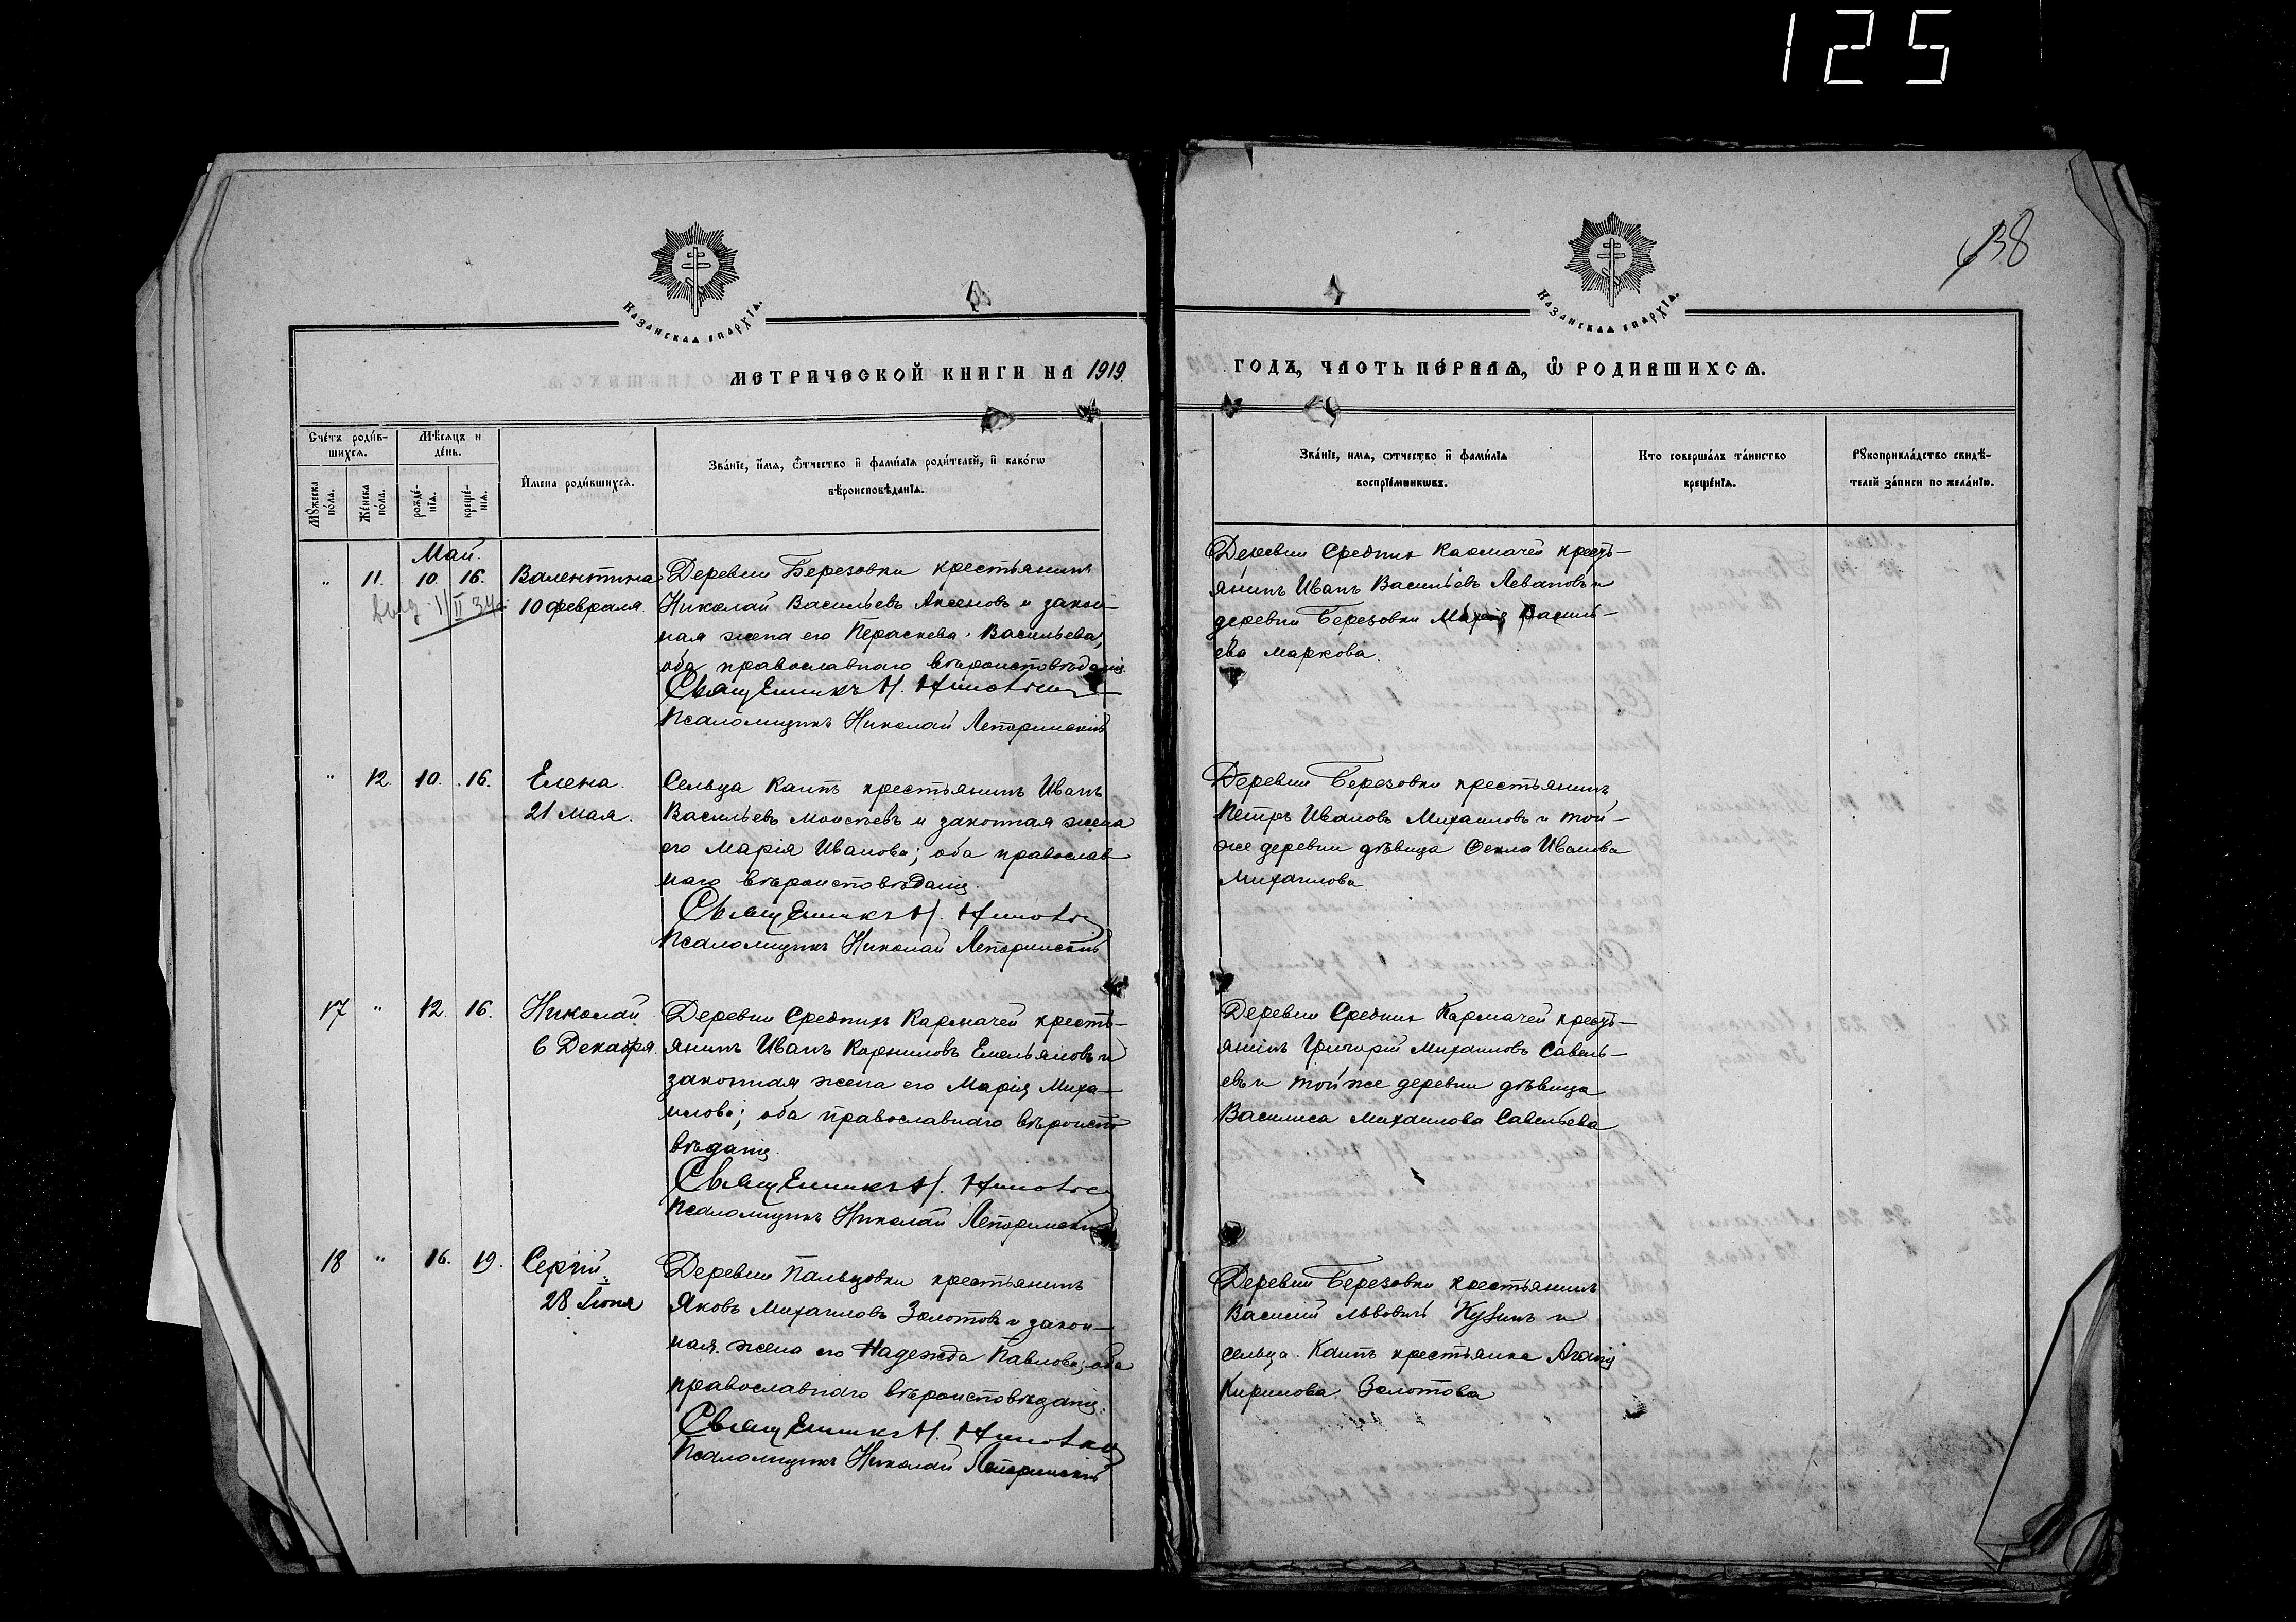 125
638
Казанская епархїа.
Казанская епархїа.
МЕТРИЧЕСКОЙ КНИГИ НА 1919
ГОДЪ, ЧАСТЬ ПЕРВАѦ, Ѡ РОДИВШИХСѦ.
Счетъ родив-
шихся.
Мѣсяцъ и
день.
Мꙋжеска
пола.
Женска
пола.
рожде-
нїя.
креще-
нїя.
Имена родившихся.
Званїе, имя, ѿчество и фамилїя родителей, и какогѡ
вѣроисповѣданїя.
Званїе, имя, ѿчество и фамилїя
воспрїемникѡвъ.
Кто совершалъ таинство
крещенїя.
Рꙋкоприкладство свидѣ-
телей записи по желанїю.
Май.
" 11. 10. 16. Валентина
10 февраля.
выд. 1/II 34
Деревни Березовки крестьянинъ
Николай Васильевъ Аксеновъ и закон-
ная жена его Параскева Васильева;
оба православнаго вѣроисповѣданія
Священникъ Н.
Псаломщикъ Николай Лепоринскій
Деревни Среднихъ Кармачей крест-
янинъ Иванъ Васильевъ Левановъ и
деревни Березовки Марія Василь-
ева Маркова.
" 12. 10. 16. Елена.
21 мая.
Сельца Каипъ крестьянинъ Иванъ
Васильевъ Моисѣевъ и законная жена
его Марія Иванова; оба православ
наго вѣроисповѣданія
Священникъ Н.
Псаломщикъ Николай Лепоринскій
Деревни Березовки крестьянинъ
Петръ Ивановъ Михаиловъ и той-
же деревни дѣвица Ѳекла Иванова
Михаилова
17 " 12. 16. Николай
6 Декабря.
Деревни Среднихъ Кармачей кресть-
янинъ Иванъ Корниловъ Емельяновъ и
законная жена его Марія Миха-
илова; оба православнаго вѣроиспо
вѣданія.
Священникъ Н.
Псаломщикъ Николай Лепоринскій
Деревни Среднихъ Кармачей крест-
янинъ Григорій Михаиловъ Савель-
евъ и той же деревни дѣвица
Василиса Михаилова Савельева
18 " 16. 19. Сергій
28 Іюня
Деревни Пальцовки крестьянинъ
Яковъ Михаиловъ Золотовъ и закон-
ная жена его Надежда Павлова; оба
православнаго вѣроисповѣданія.
Священникъ Н.
Псаломщикъ Николай Лепоринскій
Деревни Березовки крестьянинъ
Василій Львовичъ и
сельца Каипъ крестьянка
Кирилова Золотова